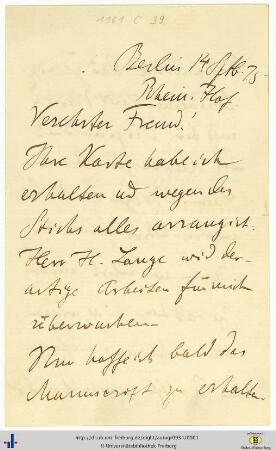 1161 C 39
Berlin 14 Sptb. 75
Rhein. Hof
Verehrter Freund!
Ihre Karte habe ich
erhalten und wegen des
Stichs alles arrangirt.
Herr H. Lange wird der-
artige Arbeiten für mich
überwachen.
Nun hoffe ich bald das
Manuscript zu erhalten.
© Universitätsbibliothek Freiburg